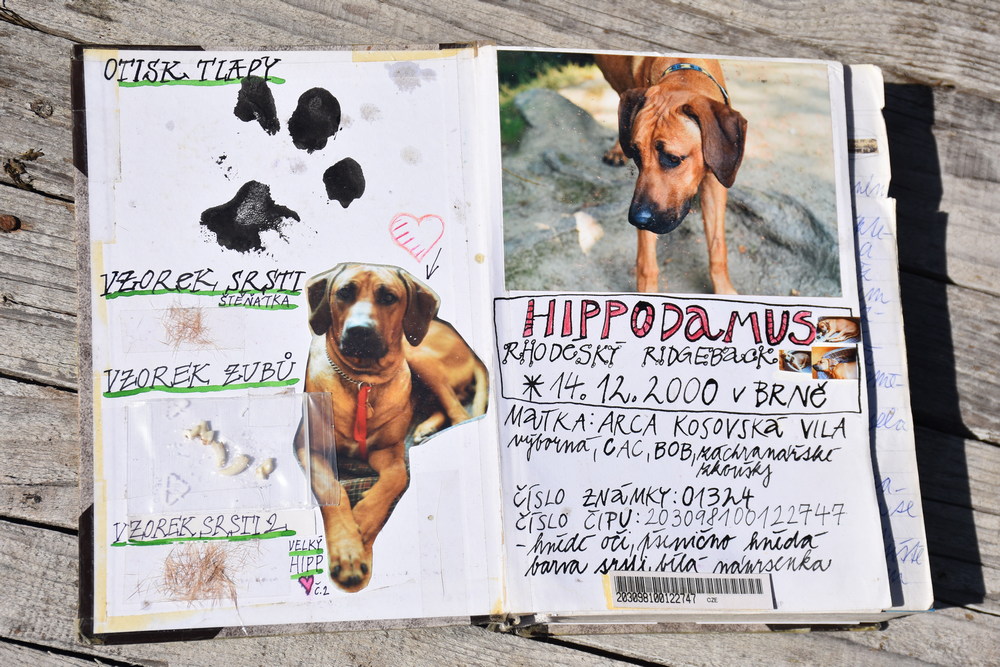 OTISK TLAPY
VZOREK SRSTI
ŠTĚŇÁTKA
VZOREK ZUBŮ
VZOREK SRSTI 2
VELKÝ
HIPP
č.2
HIPPODaMUS
RHODÉSKÝ RIDGEBACK
* 14.12.2000 v BRNĚ
MATKA: ARCA KOSOVSKÁ VILA
výborná, CAC, BOB, záchranářské
zkoušky
ČÍSLO ZNÁMKY: 01324
ČÍSLO ČIPU: 203098100122747
- hnědé oči, pšenično hnědá
barva srsti, bílá náprsenka
203098100122747 CZE